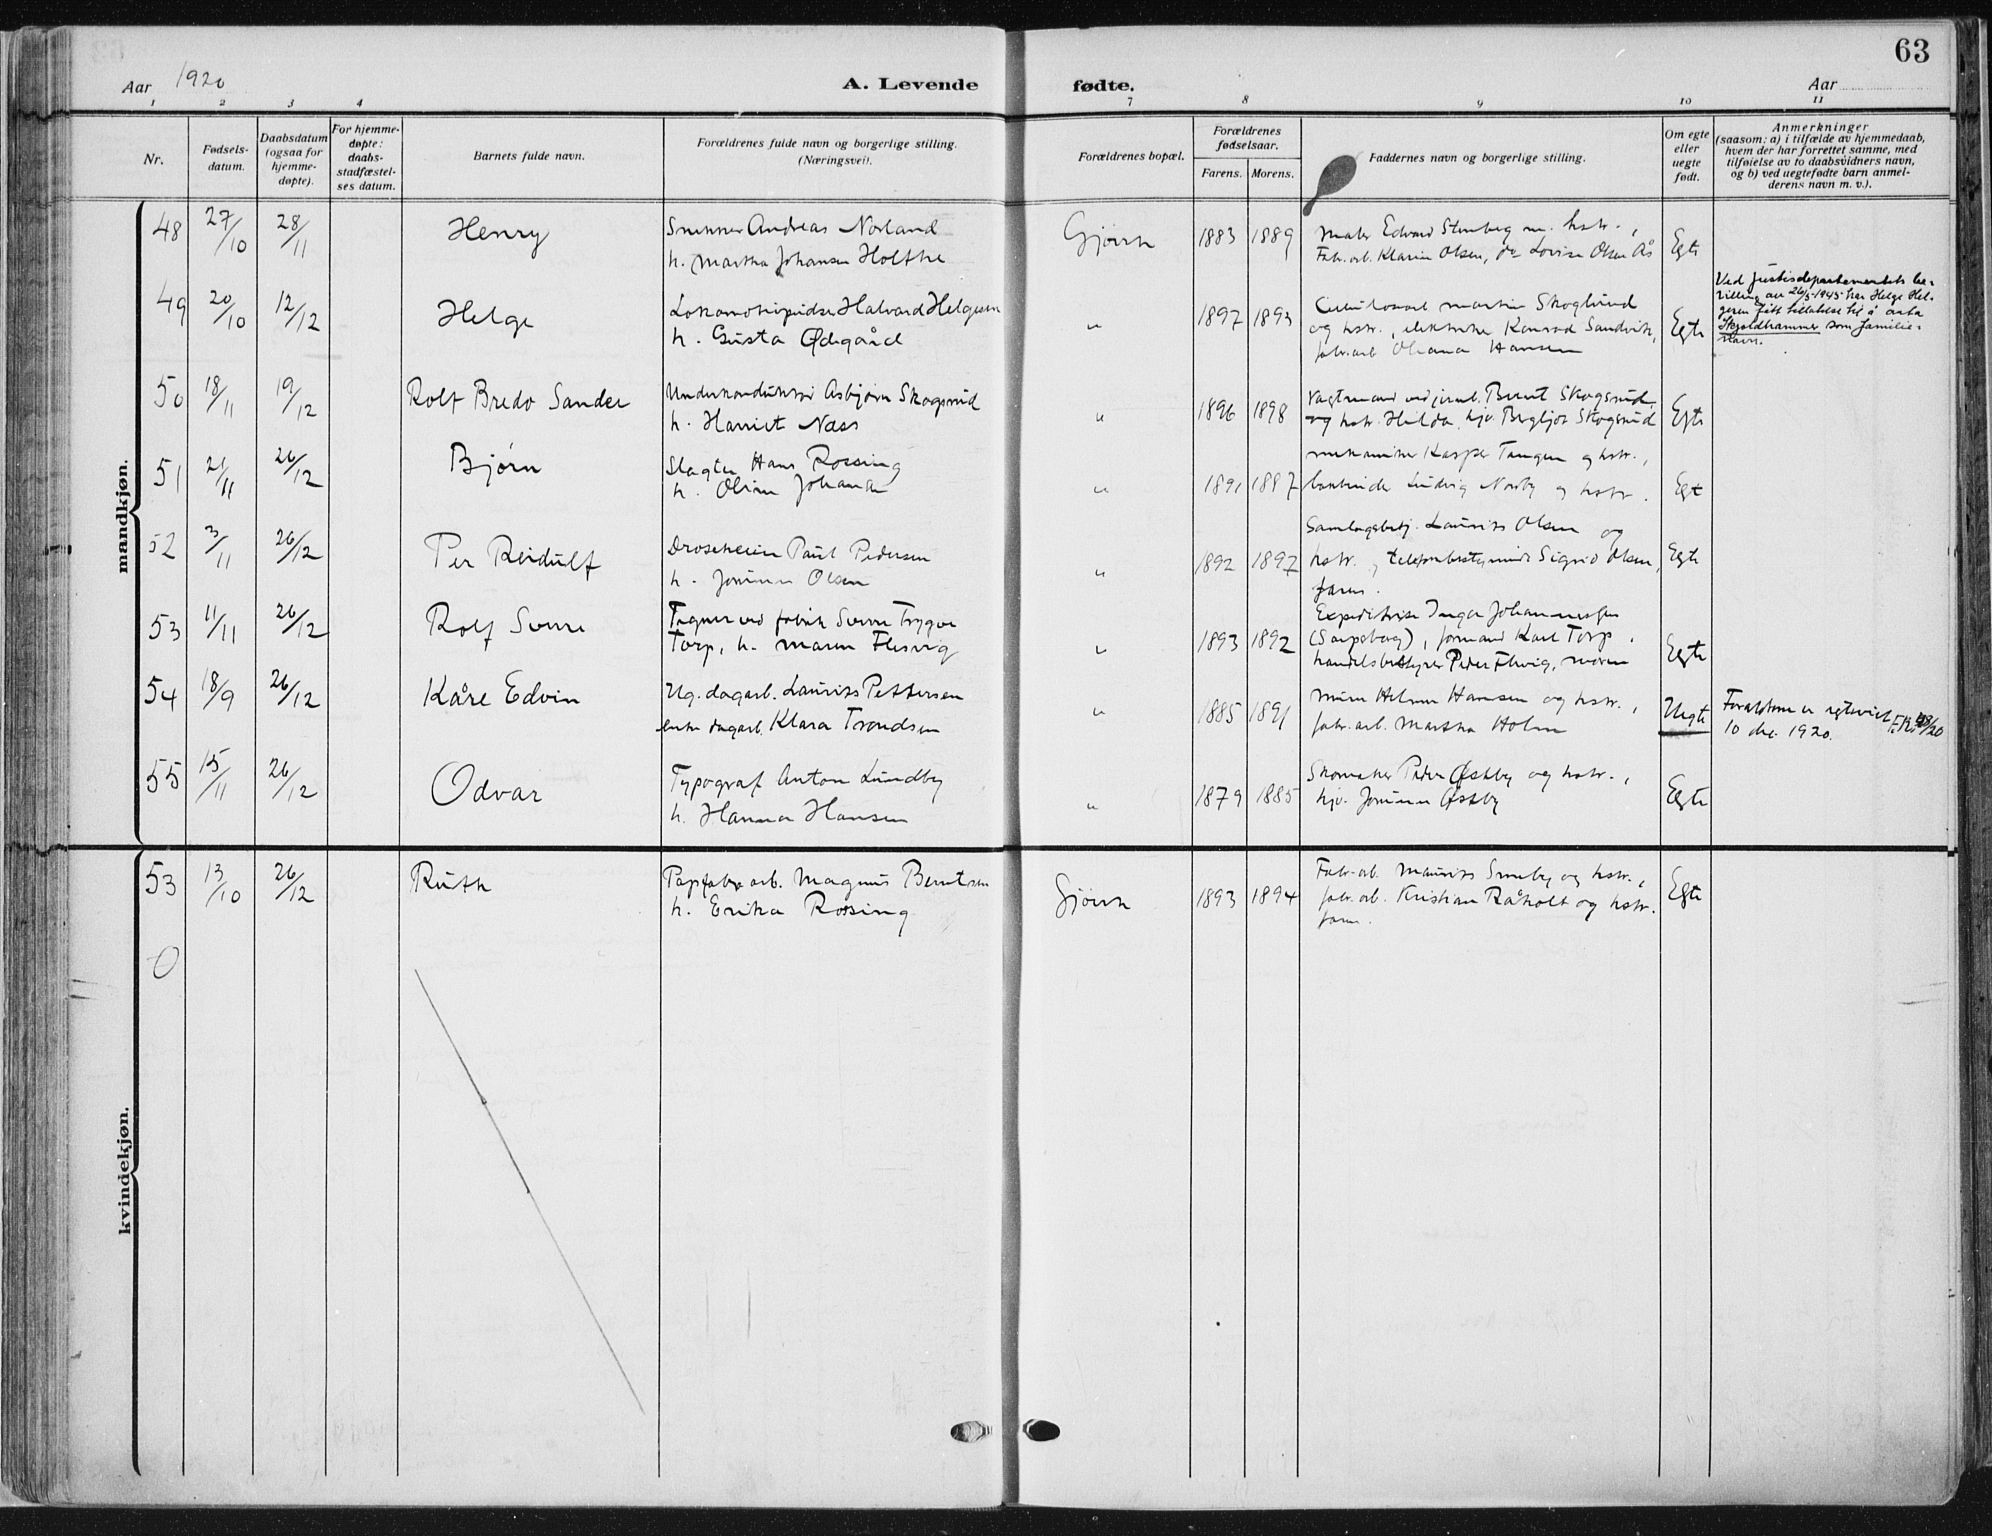 63
Aar 1920
A. Levende fødte.
Aar
1 2 3 4 7 8 9 10 11
Nr.
Fødsels-
datum.
Daabsdatum
(ogsaa for
hjemme-
døpte).
For hjemme-
døpte:
daabs-
stadfæstel-
ses datum.
Barnets fulde navn.
Forældrenes fulde navn og borgerlige stilling.
(Næringsvei).
Forældrenes bopæl.
Forældrenes
fødselsaar.
Farens. Morens.
Faddernes navn og borgerlige stilling.
Om egte
eller
uegte
født.
Anmerkninger
(saasom: a) i tilfælde av hjemmedaab,
hvem der har forrettet samme, med
tilføielse av to daabsvidners navn,
og b) ved uegtefødte barn anmel-
derens navn m. v.).
mandkjøn.
48 27/10 28/11 Henry
Snekker Andreas Norland
h. Martha Johansen Holthe
Gjøvik 1883 1889
Maler Edvard Stenberg m. hstr.,
Fabr.arb. Klarin Olsen, do Lovise Olsen Ås
Egte
49 20/10 12/12 Helge
Halvard Helgesen
h. Gusta Ødegård
" 1897 1893
Martin Skoglund
og hstr., elektriker Konrad Sandvik,
fabr.arb. Oliana Hansen
Egte
Ved Justisdepartementets be-
villing av 26/5-1945 har Helge Hel-
gesen fått tillatelse til å anta
Skjoldhammer som familie-
navn.
50 18/11 19/12 Rolf Bredo Sander
Underkonduktør Asbjørn Skogsrud
h. Harriet Næss
" 1896 1898
Vagtmand ved jernb. Bernt Skogsrud
og hstr. Hilda, hjv. Bergljot Skogsrud
Egte
51 21/11 26/12 Bjørn
Slagter Hans Rossing
h. Oline Johansen
" 1891 1887
mekaniker Kasper Tangen og hstr.,
Ludvig Norby og hstr.
Egt
52 3/11 26/12 Per Reidulf
Droscheeier Paul Pedersen
h. Jorunn Olsen
" 1892 1897
Samlagsbetj. Laurits Olsen og
hstr., Sigrid Olsen,
faren.
Egte
53 11/11 26/12 Rolf Sverre
Tegner ved fabrik Sverre Trygve
Torp, h. Maren Flesvig
" 1893 1892
Expeditrise Inga Johannessen
(Sarpsborg), formand Karl Torp,
handelsbestyrer Peder Flesvig, moren
Egte
54 18/9 26/12 Kåre Edvin
Ug. dagarb. Laurits Pettersen
enke dagarb. Klara Trondsen
" 1885 1891
Hansen og hstr.,
fabr.arb. Martha Holm
Uegte
Forældrene er egteviet
10 dec 1920.
55 15/11 26/12 Odvar
Typograf Anton Lundby
h. Hanna Hansen
" 1879 1885
Skomaker Peder Østby og hstr.,
hjv. Jorunn Østby
Egte
kvindekjøn.
53 13/10 26/12 Ruth
Papfabr. arb. Magnus Berntsen
h. Erika Rossing
Gjøvik 1893 1894
Fabr.arb. Maurits Smeby og hstr.,
fabr.arb. Kristian Råholt og hstr.
faren.
Egte
0